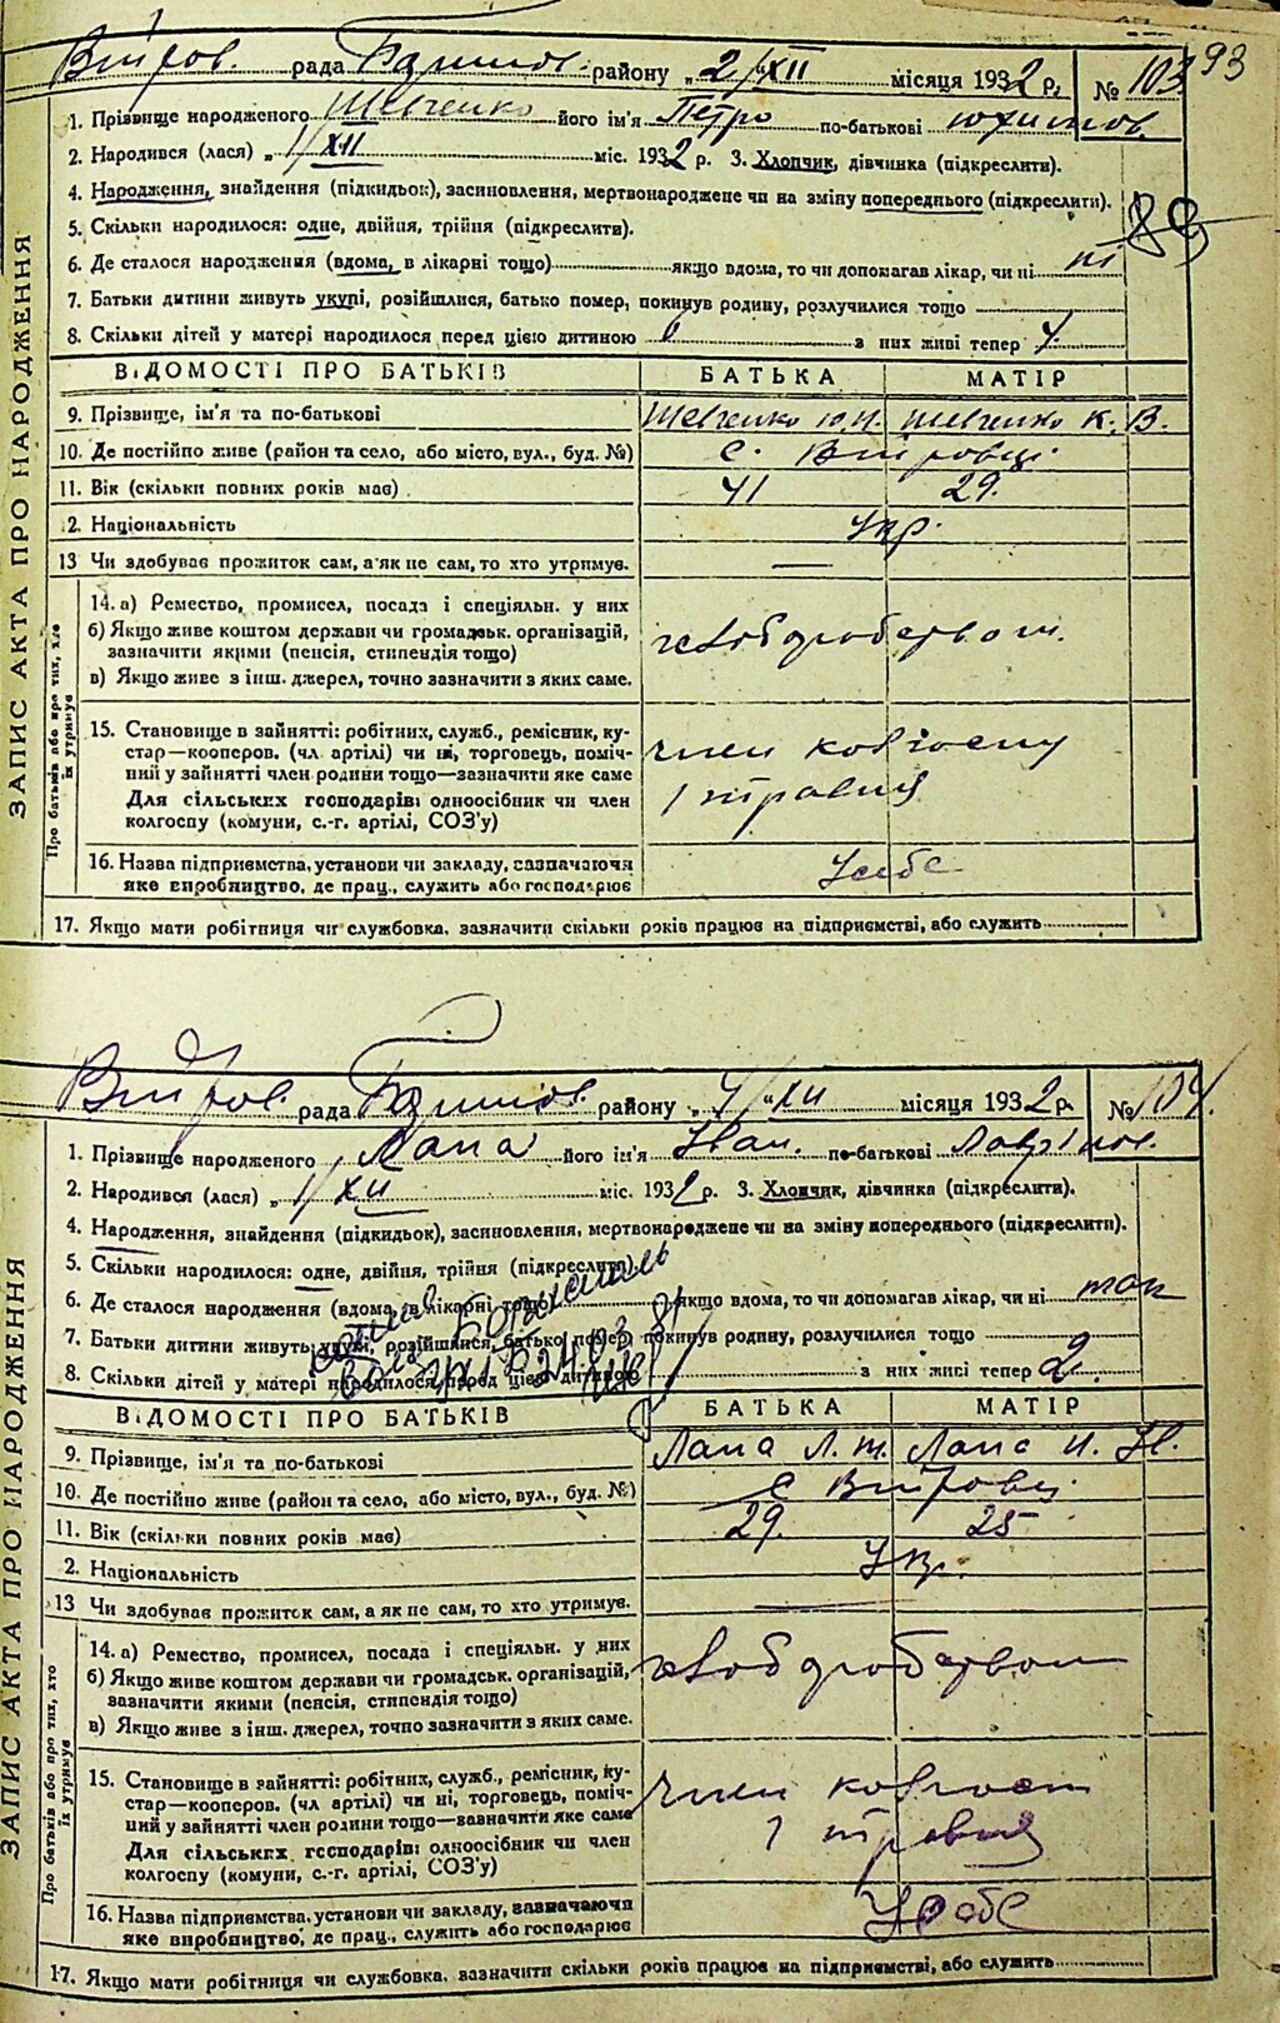 93
Війтов. рада Баришів. району „2/„XII місяця 1932 р. № 103
1. Прізвище народженого Шевченко його ім'я Петро по-батькові Юхимов.
2. Народився (лася) „1/XII міс. 1932 р. 3. Хлопчик, дівчинка (підкреслити).
4. Народження, знайдення (підкидьок), засиновлення, мертвонароджене чи на зміну попереднього (підкреслити).
89
5. Скільки народилося: одне, двійня, трійня (підкреслити).
6. Де сталося народження (вдома, в лікарні тощо) якщо вдома, то чи допомагав лікар, чи ні ні
7. Батьки дитини живуть укупі, розійшлися, батько помер, покинув родину, розлучилися тощо
8. Скільки дітей у матері народилося перед цією дитиною з них живі тепер 4.
ВІДОМОСТІ ПРО БАТЬКІВ БАТЬКА МАТІР
9. Прізвище, ім'я та по-батькові Шевченко Ю.И. Шевченко К. В.
10. Де постійно живе (район та село, або місто, вул., буд. №) с. Війтовці
11. Вік (скільки повних років має) 41 29.
2. Національність Укр.
13 Чи здобував прожиток сам, а як не сам, то хто утримує. —
ЗАПИС АКТА ПРО НАРОДЖЕННЯ
Про батьків або про тих, хто їх утримує
14. а) Ремество, промисел, посада і спеціяльн. у них
б) Якщо живе коштом держави чи громадськ. організацій,
зазначити якими (пенсія, стипендія тощо)
в) Якщо живе з інш. джерел, точно зазначити з яких саме.
хлібороб
15. Становище в зайнятті: робітник, служб., ремісник, ку-
стар—кооперов. (чл. артілі) чи ні, торговець, поміч-
ний у зайнятті член родини тощо—зазначити яке саме
Для сільських господарів: одноосібник чи член
колгоспу (комуни, с.-г. артілі, СОЗ'у)
член колгоспу
1 травня
16. Назва підприємства, установи чи закладу, зазначаючи
яке виробництво, де прац., служить або господарює
У себе
17. Якщо мати робітниця чи службовка, зазначити скільки років працює на підприємстві, або служить
Війтов. рада Баришів. району „4/„XII місяця 1932 р. № 104.
1. Прізвище народженого Лапа його ім'я Іван. по-батькові Лаврінов.
2. Народився (лася) „1/XII міс. 1932 р. 3. Хлопчик, дівчинка (підкреслити).
4. Народження, знайдення (підкидьок), засиновлення, мертвонароджене чи на зміну попереднього (підкреслити).
5. Скільки народилося: одне, двійня, трійня (підкреслити).
6. Де сталося народження (вдома, в лікарні тощо) якщо вдома, то чи допомагав лікар, чи ні так
7. Батьки дитини живуть укупі, розійшлися, батько помер, покинув родину, розлучилися тощо
8. Скільки дітей у матері народилося перед цією дитиною з них живі тепер 2.
ВІДОМОСТІ ПРО БАТЬКІВ БАТЬКА МАТІР
9. Прізвище, ім'я та по-батькові Лапа Л. т. Лапа И. Ів.
10. Де постійно живе (район та село, або місто, вул., буд. №) с Війтовці
11. Вік (скільки повних років має) 29. 25
2. Національність Укр.
13 Чи здобував прожиток сам, а як не сам, то хто утримує. —
ЗАПИС АКТА ПРО НАРОДЖЕННЯ
Про батьків або про тих, хто їх утримує
14. а) Ремество, промисел, посада і спеціяльн. у них
б) Якщо живе коштом держави чи громадськ. організацій,
зазначити якими (пенсія, стипендія тощо)
в) Якщо живе з інш. джерел, точно зазначити з яких саме.
15. Становище в зайнятті: робітник, служб., ремісник, ку-
стар—кооперов. (чл артілі) чи ні, торговець, поміч-
ний у зайнятті член родини тощо—зазначити яке саме
Для сільських господарів: одноосібник чи член
колгоспу (комуни, с.-г. артілі, СОЗ'у)
член колгосп
1 травня
16. Назва підприємства, установи чи закладу, зазначаючи
яке виробництво, де прац., служить або господарює
У себе
17. Якщо мати робітниця чи службовка, зазначити скільки років працює на підприємстві, або служить